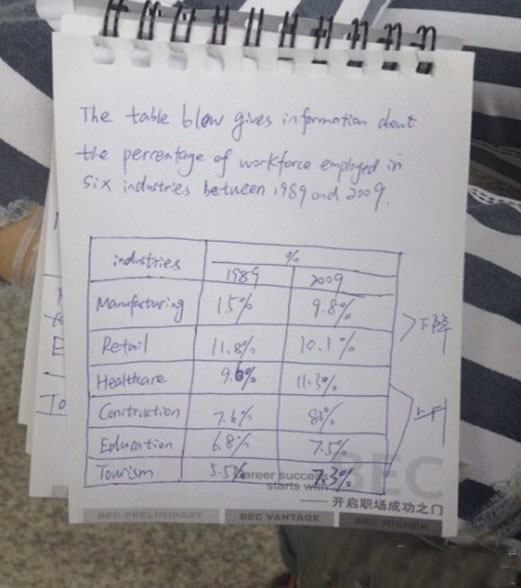 The table blow gives information about
the percentage of workforce employed in
six industries between 1989 and 2009.
industries %
1989 2009
Manufacturing 15% 9.8%
Retail 11.8% 10.1%
下降
Healthcare 9.6% 11.3%
Construction 7.6%
上升
Education 6.8% 7.5%
Tourism 5.5% 7.3%
Career success
starts with
BEC
—— 开启职场成功之门
BEC PRELIMINARY BEC VANTAGE BEC HIGHER